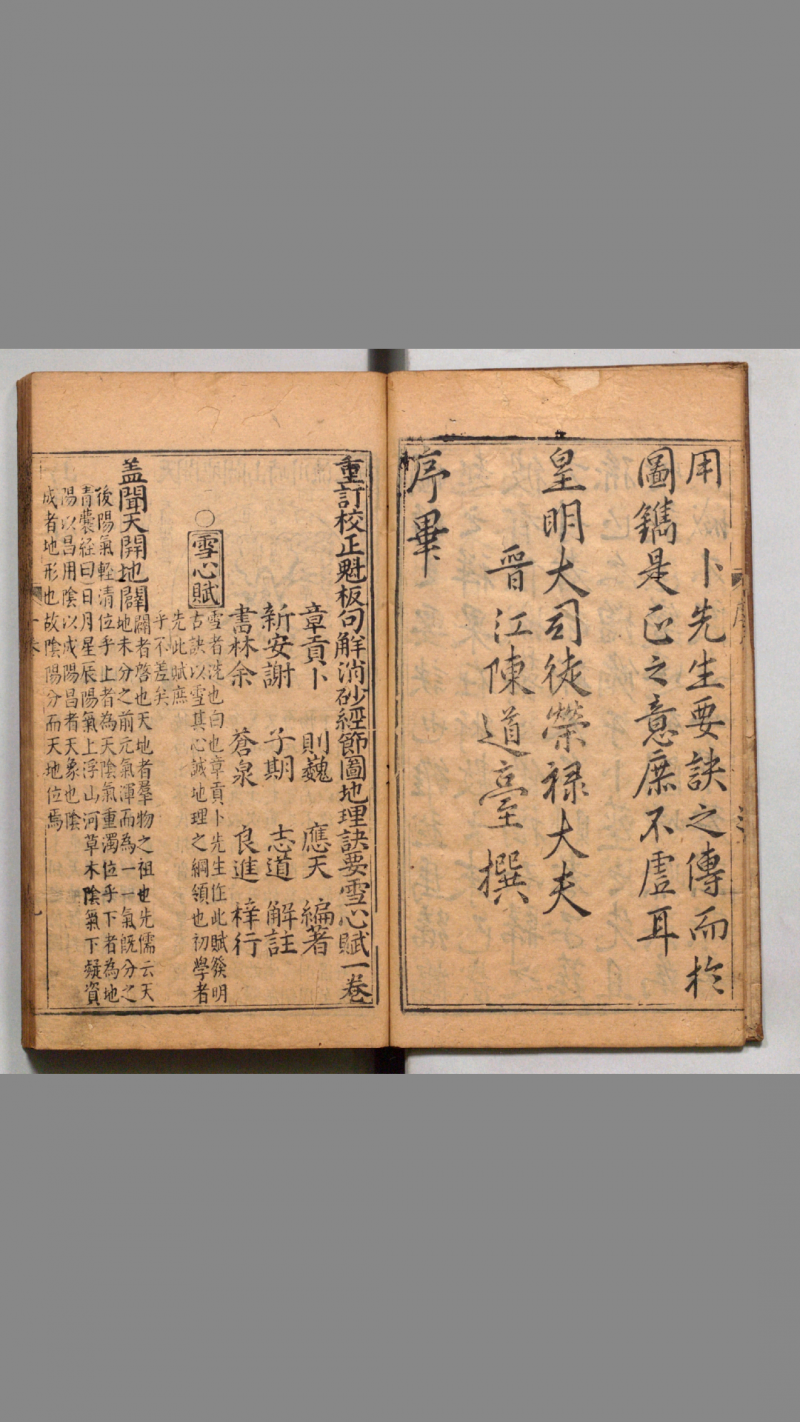 用 卜先生要訣之傳而於
圖鐫是正之意庶不虛耳
皇明大司徒榮祿大夫
晉江陳道亨撰
序畢
重訂校正魁板句解消砂經節圖地理訣要雪心賦一卷
章貢卜 則巍 應天 編著
新安謝 子期 志道 解註
書林余 蒼泉 良進 梓行
○雪心賦
雪者洗也白也章貢卜先生作此賦發明
古訣以雪其心誠地理之綱領也初學者
先此賦庶
乎不差矣
盖聞天開地闢
闢者啓也天地者羣物之祖也先儒云天
地未分之前元氣渾而為一一氣既分之
後陽氣輕清位乎上者為天陰氣重濁位乎下者為地
青囊經曰日月星辰陽氣上浮山河草木陰氣下凝資
陽以昌用陰以成陽昌者天象也陰
成者地形也故陰陽分而天地位焉